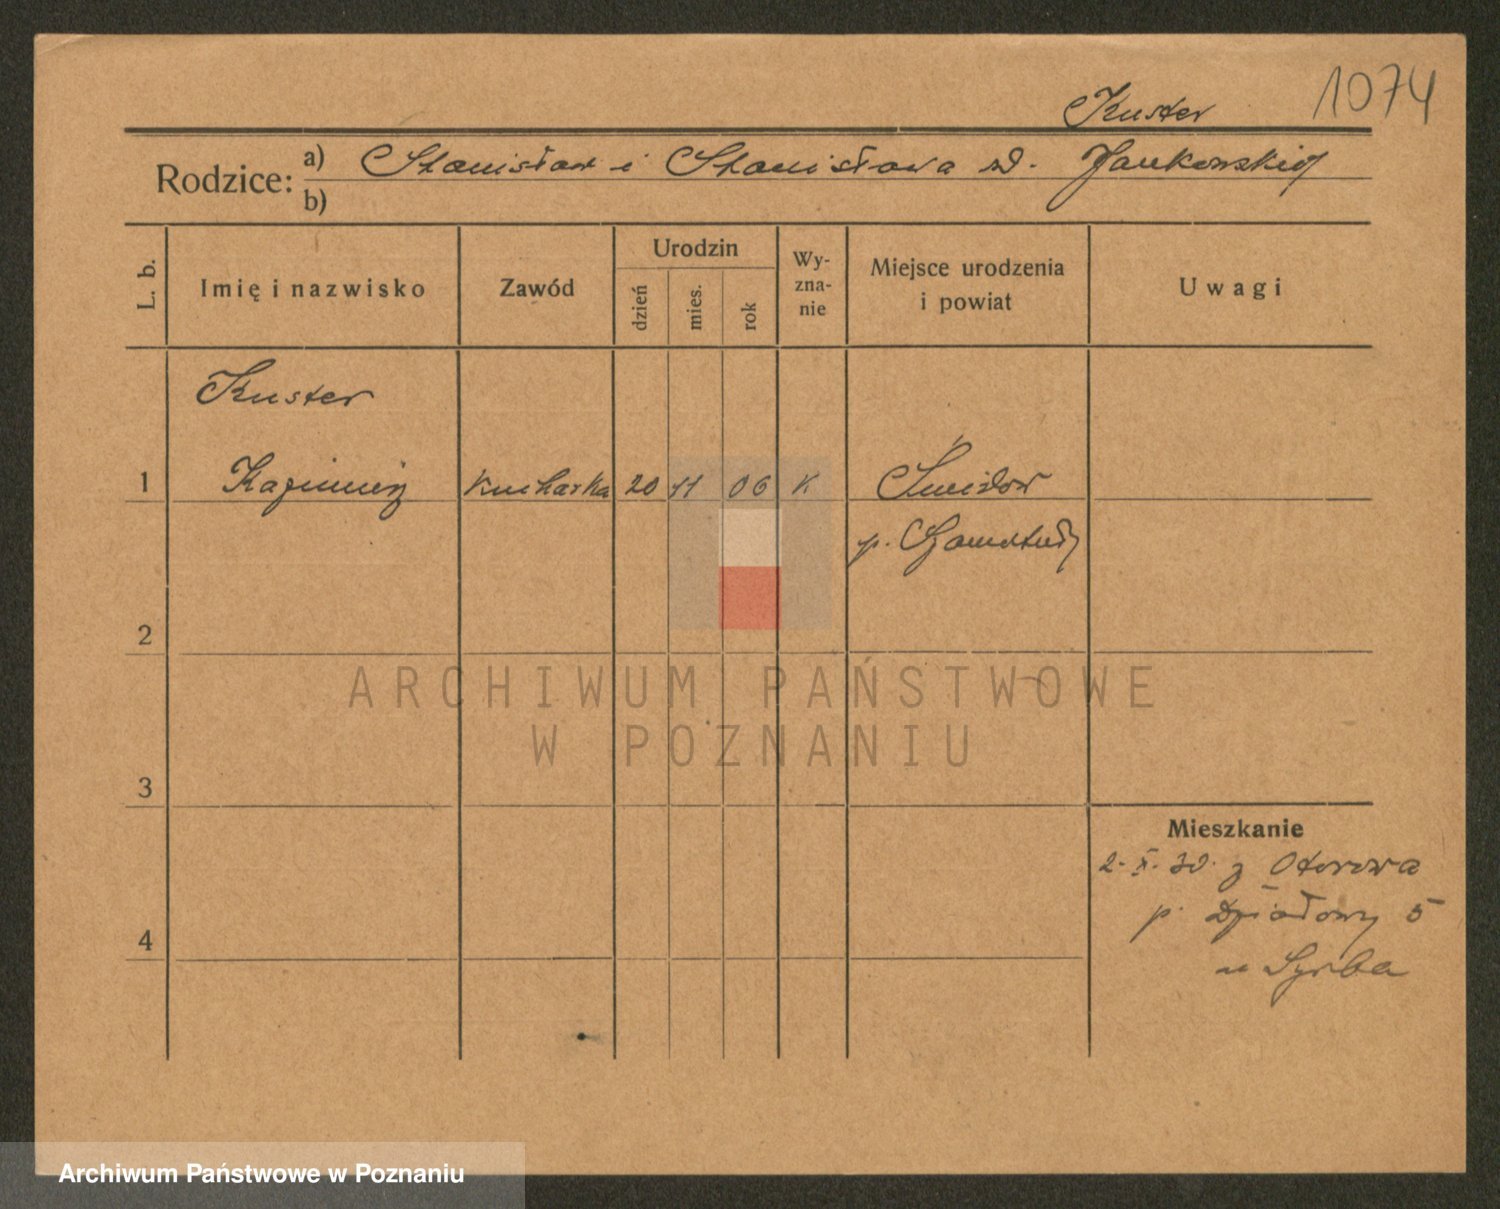 1074
Kuster
Rodzice: a) Stanisław i Stanisława d. Jankowskiej
b)
L. b. Imię i nazwisko Zawód Urodzin dzień mies. rok Wy-zna-nie Miejsce urodzenia i powiat Uwagi
Kuster
1 Kazimierz kucharka 20 11 06 K
p. Szamotuły
2
ARCHIWUM PAŃSTWOWE
W POZNANIU
3
Mieszkanie
2. X. 30. z Otorowa
p. Działowy 5
4
u Syrba
Archiwum Państwowe w Poznaniu